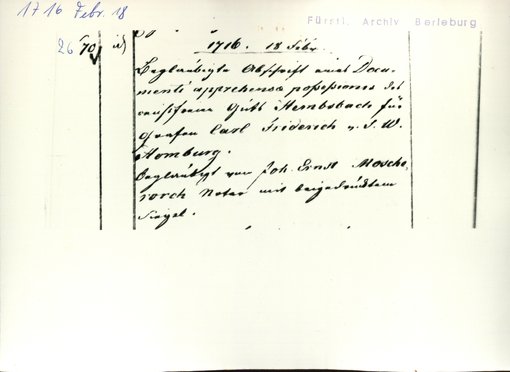 1716 Febr. 18
Fürstl. Archiv Berleburg
2670 d) 1716. 18 Febr.
Beglaubigte Abschrift eines Docu-
menti apprehensae possessionis des
Guts Hembsbach für
Grafen Carl Friderich v. S. W.
Homburg.
Beglaubigt von Joh. Ernst Mosche-
rosch Notar mit beigedrücktem
Siegel.